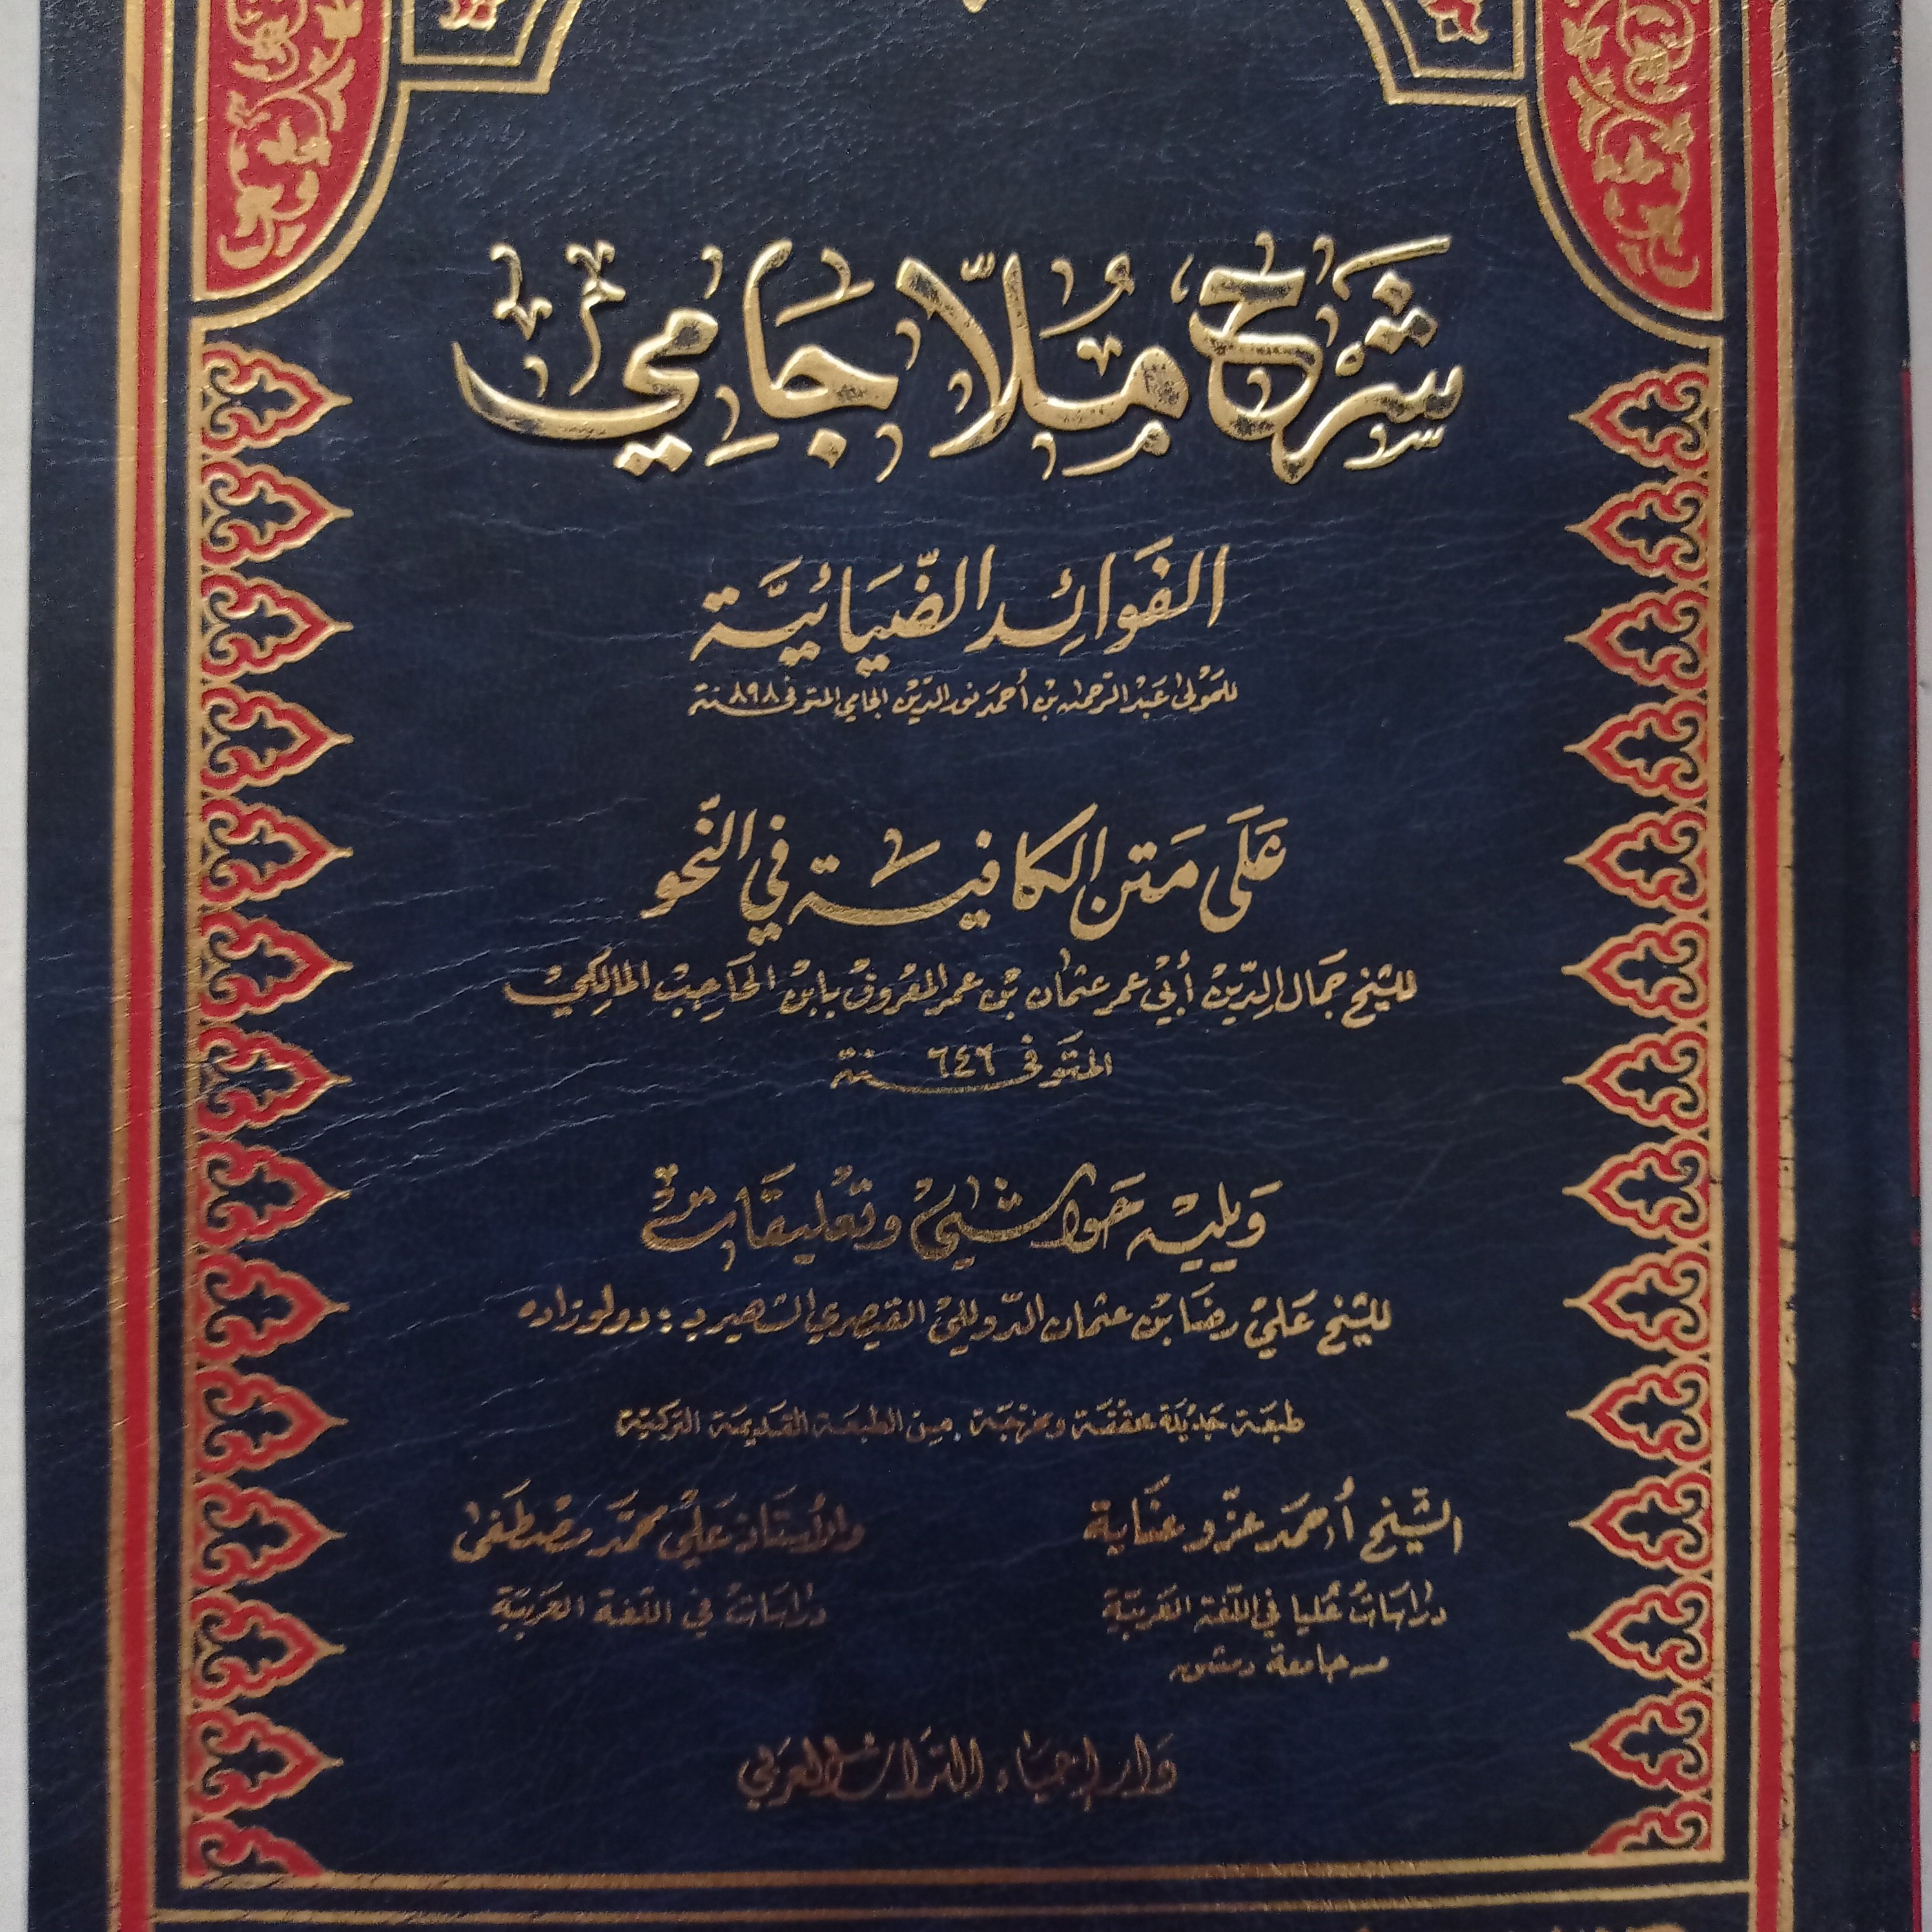 شَرْح مُلّا جَامِي
الفَوَائِد الضِّيَائِيَّة
للمَوْلى عَبْد الرّحمٰن بن أحمَد نور الدّين الجامي المتوفى سنة ٨٩٨
عَلَى مَتن الكافية في النَّحو
للشيخ جمَال الدِّين أبي عمر عثمان بن عمر المَعْروف بابن الحَاجِب المَالِكي
المتَوفى سنة ٦٤٦
وَيليه حَوَاشي وتَعْليقَات
للشيخ عَلي رضَا بن عثمان الدّوللي القيصري الشهير بـ: دولوزاده
طبعَة جَديْدَة محققَة ومخرّجَة، من الطبعَة القَديمَة التركيّة
الشّيخ أحمَد عزّو عنَاية
وَالأستَاذ عَلي محمَّد مصْطَفى
دراسَات عُليا في اللّغة العَربيّة
دراسَات في اللّغة العَربيّة
من جامعة دمشق
دَار إحيَاء التراث العَربي